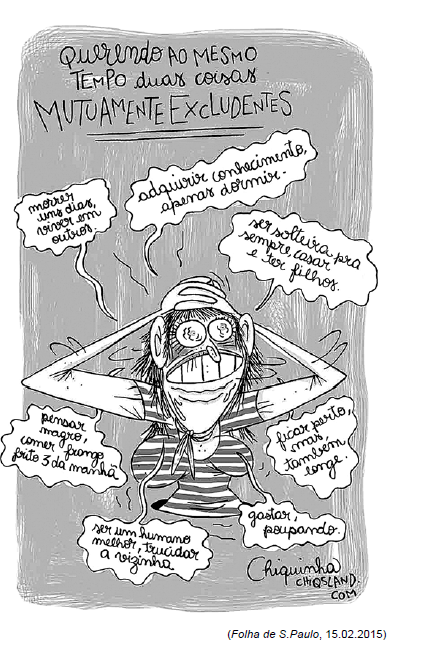 Querendo AO MESMO
TEMPO duas coisas
MUTUAMENTE EXCLUDENTES
adquirir conhecimento,
apenas dormir.
morrer
uns dias,
viver em
outros.
ser solteira pra
sempre, casar
e ter filhos.
pensar
magro,
comer frango
frito 3 da manhã
ficar perto,
mas
também
longe.
ser um humano
melhor, trucidar
a vizinha
gastar,
poupando.
Chiquinha
CHIQSLAND.
COM
(Folha de S.Paulo, 15.02.2015)